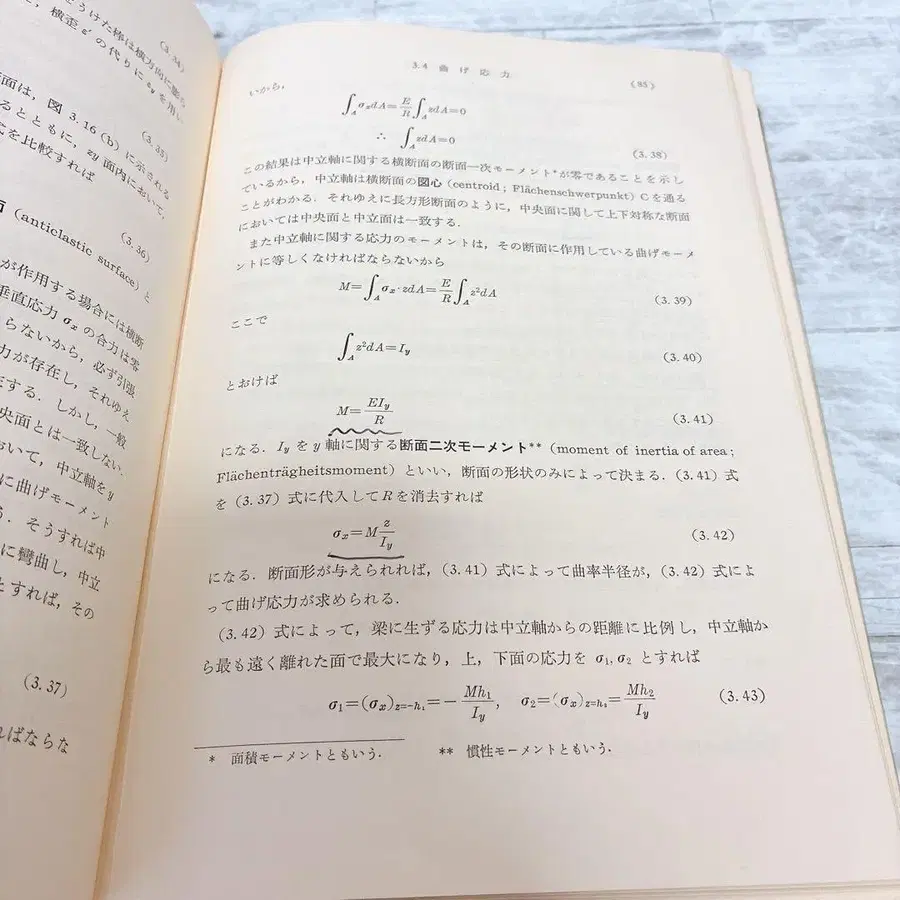 うけた棒は横方向に膨ら
横歪 ε′ の代りに εy を用い
(3.34)
断面は, 図 3.16 (b) に示される
るとともに, zy 面内において,
(3.35)
式を比較すれば
(3.36)
面 (anticlastic surface) と
が作用する場合には横断
垂直応力 σx の合力は零
らないから, 必ず引張
力が存在し, それゆえ
在する. しかし, 一般
中央面とは一致しない.
おいて, 中立軸を y
に曲げモーメント
う. そうすれば中
に彎曲し, 中立
とすれば, その
(3.37)
ればならな
3.4 曲げ応力 《85》
いから,
∫A σx dA = E/R ∫A zdA = 0
∴ ∫A zdA = 0 (3.38)
この結果は中立軸に関する横断面の断面一次モーメント*が零であることを示し
ているから, 中立軸は横断面の図心 (centroid ; Flächenschwerpunkt) C を通る
ことがわかる. それゆえに長方形断面のように, 中央面に関して上下対称な断面
においては中央面と中立面は一致する.
また中立軸に関する応力のモーメントは, その断面に作用している曲げモーメ
ントに等しくなければならないから
M = ∫A σx·zdA = E/R ∫A z²dA (3.39)
ここで
∫A z²dA = Iy (3.40)
とおけば
M = EIy/R (3.41)
になる. Iy を y 軸に関する断面二次モーメント** (moment of inertia of area ;
Flächenträgheitsmoment) といい, 断面の形状のみによって決まる. (3.41) 式
を (3.37) 式に代入して R を消去すれば
σx = M z/Iy (3.42)
になる. 断面形が与えられれば, (3.41) 式によって曲率半径が, (3.42) 式によ
って曲げ応力が求められる.
(3.42) 式によって, 梁に生ずる応力は中立軸からの距離に比例し, 中立軸か
ら最も遠く離れた面で最大になり, 上, 下面の応力を σ1, σ2 とすれば
σ1 = (σx)z=-h1 = - Mh1/Iy, σ2 = (σx)z=h2 = Mh2/Iy (3.43)
* 面積モーメントともいう. ** 慣性モーメントともいう.